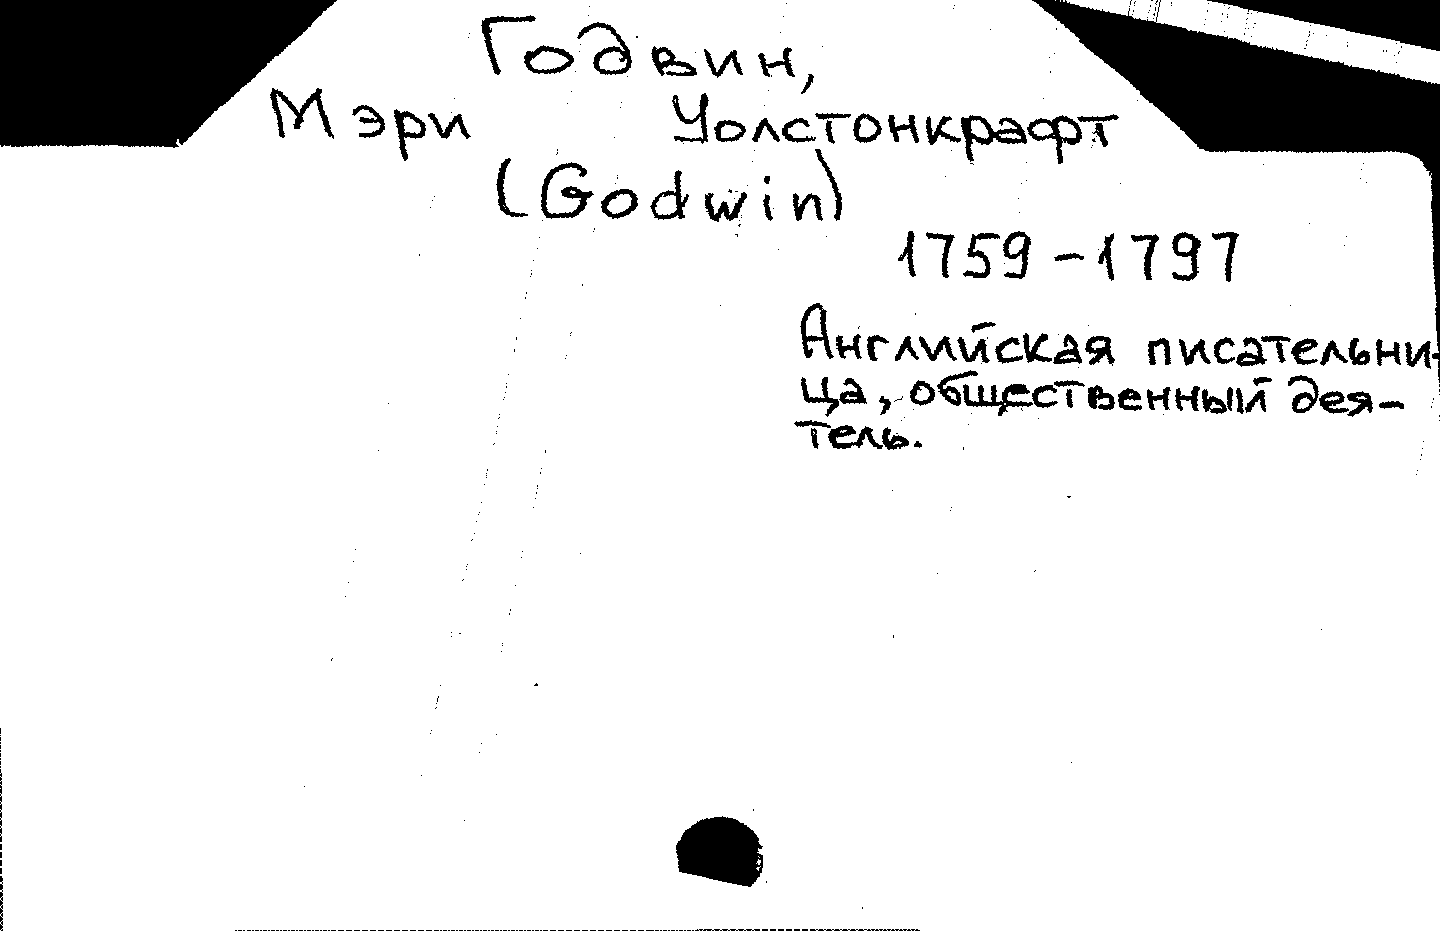 Годвин,
Мэри Уолстонкрафт
(Godwin)
1759-1797
Английская писательни-
ца, общественный дея-
тель.